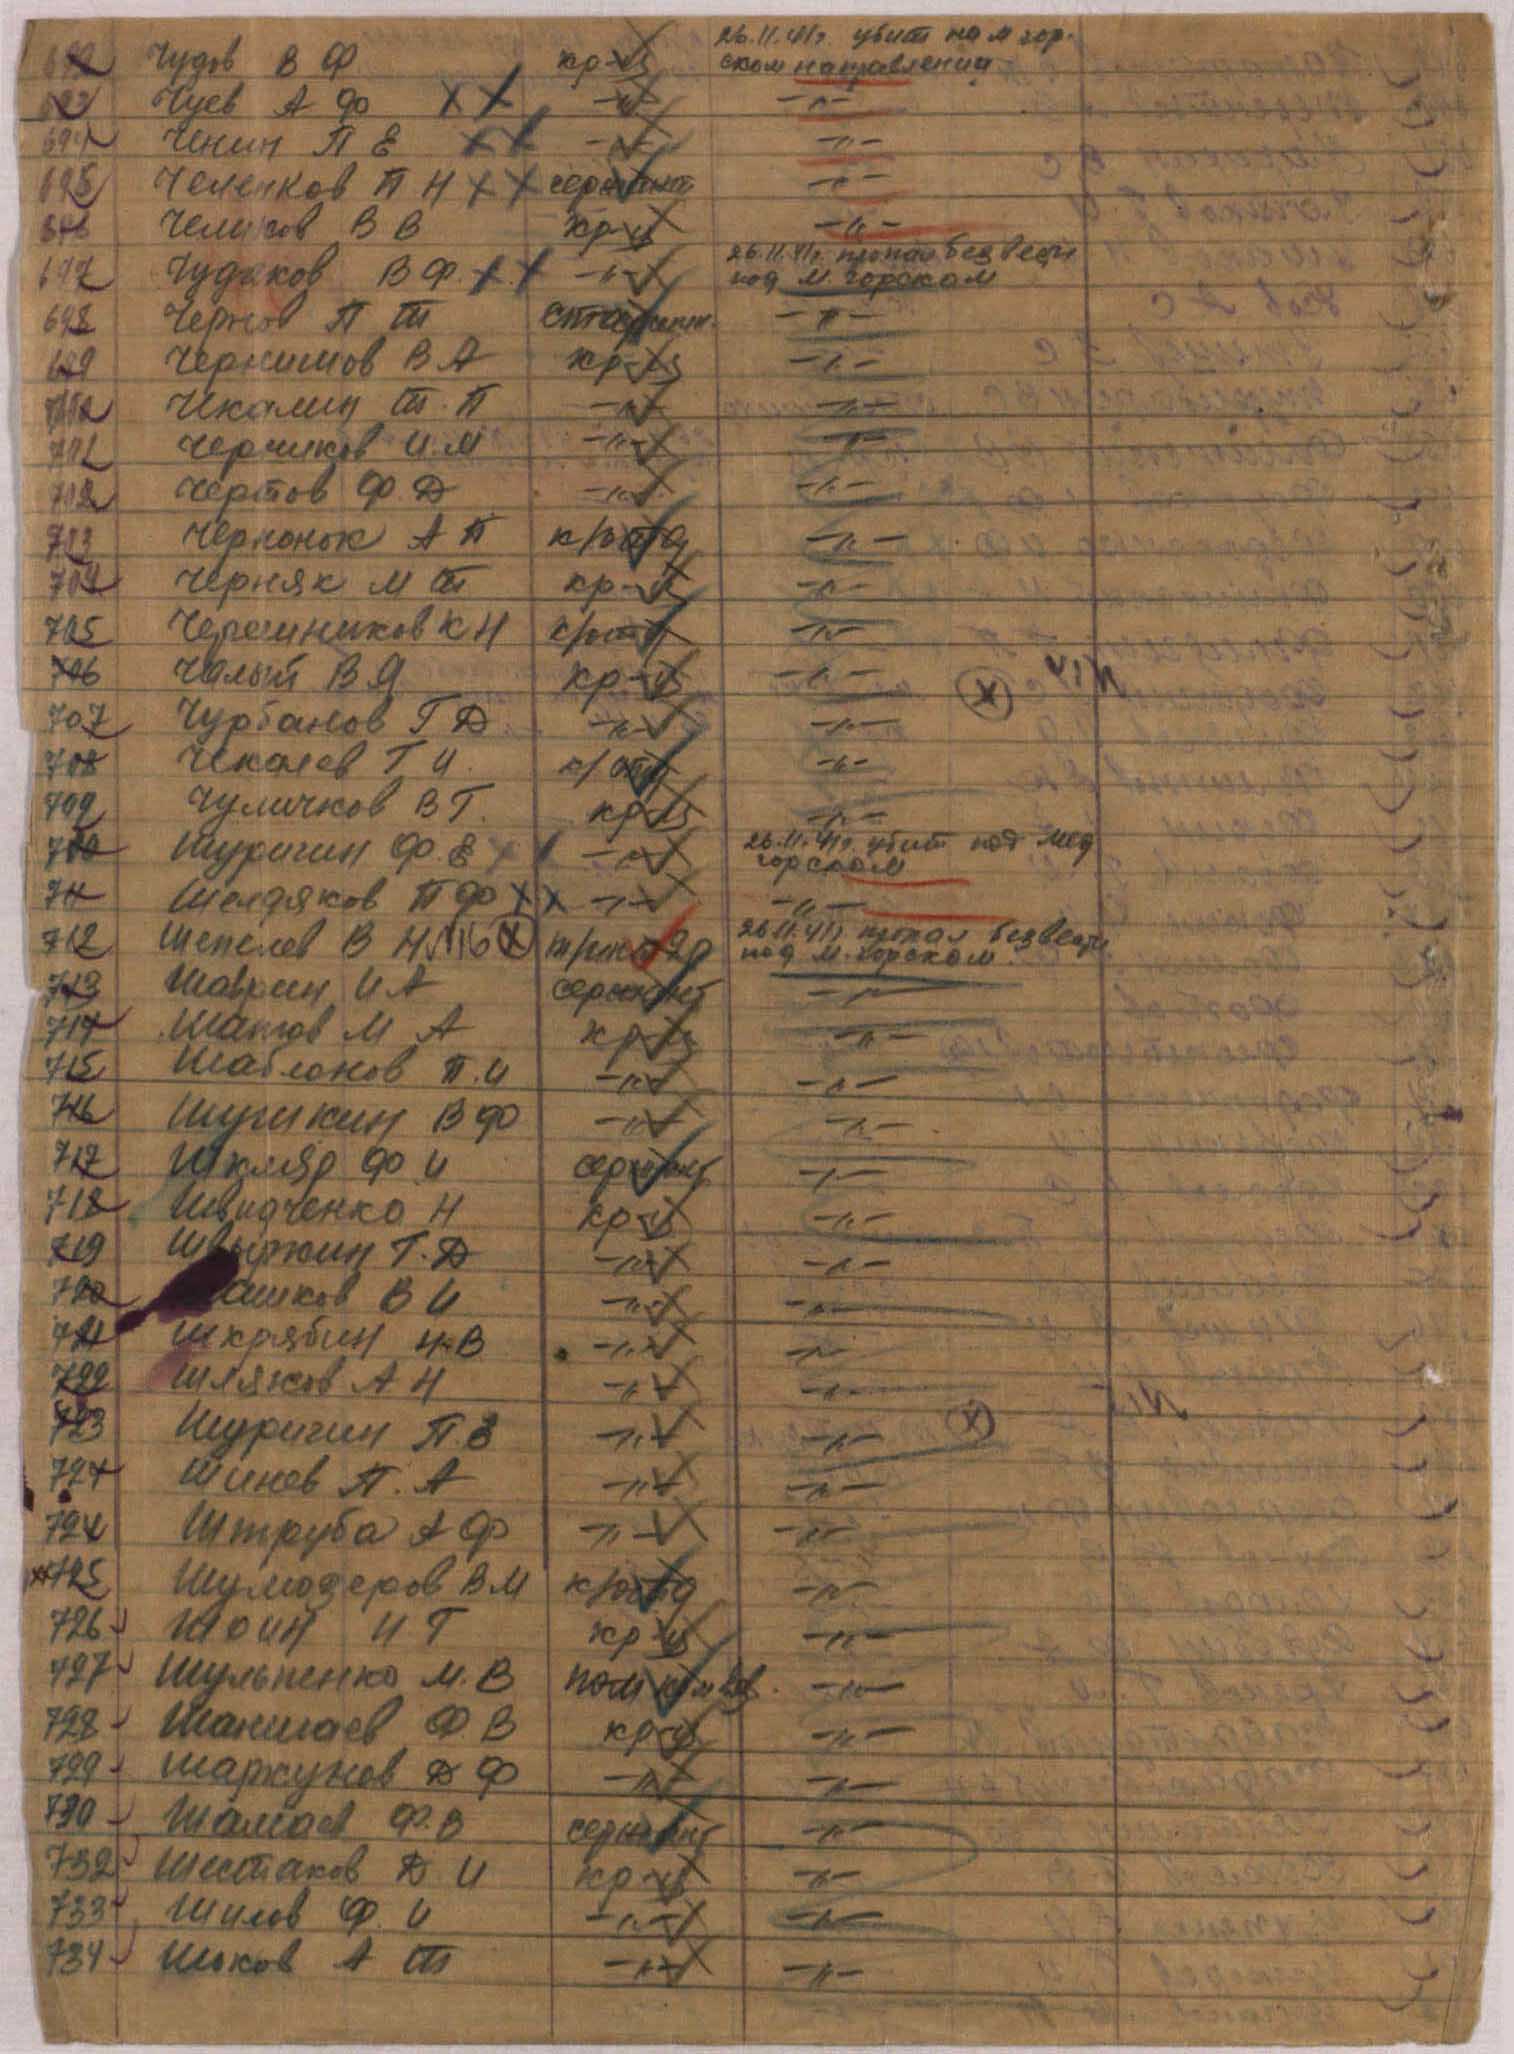 692 Чудов В Ф кр-ц 26.11.41г. убит на м гор-
ском направлении
693 Чуев А Ф ХХ -"- -"-
694 Чинин П Е ХХ -"- -"-
695 Челенков П Н ХХ сержант -"-
696 Челиков В В кр-ц -"-
697 Чудаков В Ф. ХХ -"- 26.11.41г. пропал без вести
под М. горском
698 Чернов П Т -"-
699 Чернишов В А кр-ц -"-
700 Чкалин Т. П -"- -"-
701 Черчиков И. М -"- -"-
702 Чертов Ф. Д -"- -"-
703 Чернонок А П к/отд -"-
704 Черняк М Т кр-ц -"-
705 Черешников К Н к/отд -"-
706 Чалый В Я кр-ц -"-
707 Чурбанов Г Д -"- -"-
708 Чекалев Г И. к/отд -"-
709 Чуличков В Г. кр-ц -"-
710 Шуригин Ф. Е ХХ -"- 26.11.41г. убит под Мед
горском
711 Шелдяков П Ф ХХ -"- -"-
712 Шепелев В Н №16 Х 26.11.41г. пропал без вести
под М. горском
713 Шаврин И А сержант -"-
714 Шатов М А кр-ц -"-
715 Шаблонов П. И -"- -"-
716 Шугикин В Ф -"- -"-
717 Шкляр Ф И сержант -"-
718 Швидченко Н кр-ц -"-
719 Швыркин Г. Д -"- -"-
720 ашков В И -"- -"-
721 Шкрябин Н. В -"- -"-
722 Шляков А Н -"- -"-
723 Шуригин П. З -"- -"-
724 Шинев П. А -"- -"-
724 Штруба А Ф -"- -"-
725 Шумодеров В М к/отд -"-
726 Шоин И Г кр-ц -"-
727 Шульпенко М. В пом ком вз. -"-
728 Шаншаев Ф. В кр-ц -"-
729 Шаркунов Д Ф -"- -"-
730 Шамаев Ф. В сержант -"-
732 Шестаков Д. И кр-ц -"-
733 Шилов Ф. И -"- -"-
734 Шоков А Т -"- -"-